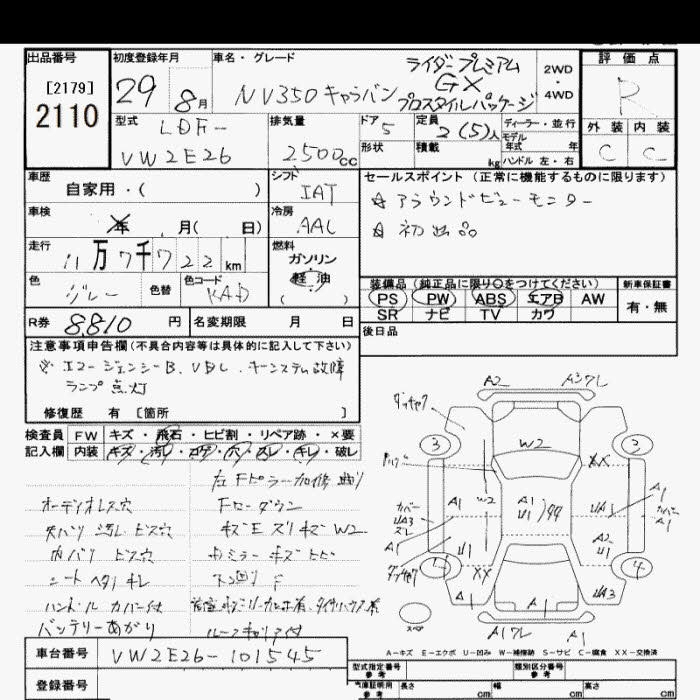 出品番号
[2179]
2110
初度登録年月
29 8月
車名・グレード
NV350キャラバン
ライダープレミアム
GX
プロスタイルパッケージ
2WD
・
4WD
評価点
R
外装 内装
C C
型式
LDF-
VW2E26
排気量
2500cc
ドア 5
形状
定員
2(5)人
積載
kg
ディーラー・並行
モデル
年式 年
ハンドル 左・右
車歴
自家用・( )
シフト
IAT
車検
年 月( 日)
冷房
AAC
走行
11万7千722km
燃料
ガソリン
軽油
( )
色
グレー
色替
色コード
KAD
R券 8,810 円
名変期限 月 日
セールスポイント(正常に機能するものに限ります)
☆ アラウンドビューモニター
☆ 初出品
装備品(純正品に限り○をつけてください)
PS PW ABS エアB AW
SR ナビ TV カワ
新車保証書
有・無
後日品
注意事項申告欄(不具合内容等は具体的に記入して下さい)
※ エマージェンシーB、VDC、キーシステム故障
ランプ点灯
修復歴 有 [箇所 ]
検査員
記入欄
FW キズ・飛石・ヒビ割・リペア跡・×要
内装 キズ・汚れ・コゲ・穴・スレ・キレ・破レ
左Fピラー加修 曲り
オーディオレス穴
Fローダウン
天バリ 汚れ ビス穴
キズE ズリキズ W2
内バリ ビス穴
内ミラー キズ ヒビ
シート ヘタリ キレ
下回り F
ハンドル カバー付
バッテリーあがり
ルーフキャリア付
車台番号 VW2E26-101545
登録番号
A2
A3フレ
3
3
W2
XX
W2
A1
A1
U1
A1
カバー
UA3
スレ
A1
U1
UA3
A1
カバー
A1
A2
U1
XX
4
A1
UA3
A1
スペア
A1フレ
A1
A-キズ E-エクボ U-凹み W-補修跡 S-サビ C-腐食 XX-交換済
型式指定番号
参考
類別区分番号
参考
車庫証明用
参考
長さ cm 幅 cm 高さ cm